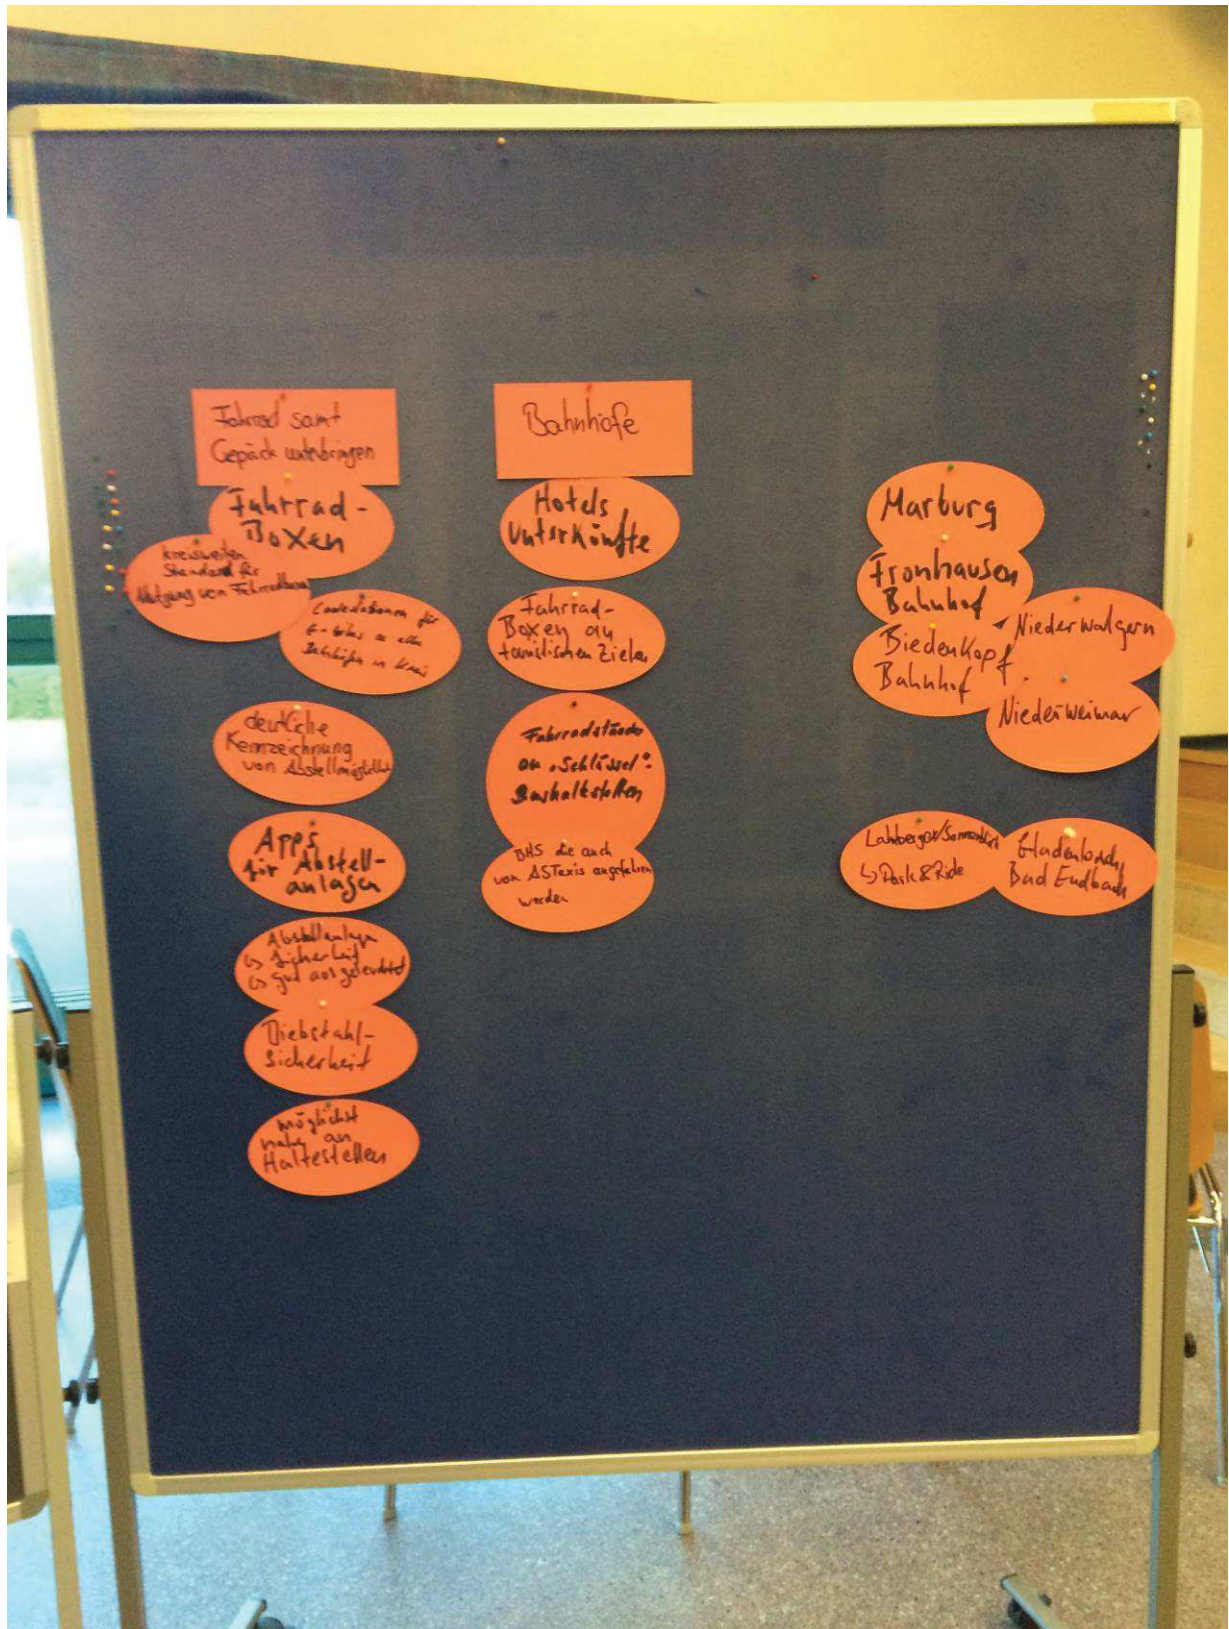 Fahrrad samt
Gepäck unterbringen
Fahrrad-
Boxen
kreisweiten
Standard für
Nutzung von Fahrradboxen
für
E-bikes an allen
Bahnhöfen in Kreis
deutliche
Kennzeichnung
von
Apps
für Abstell-
anlagen
Abstellanlagen
↳ Sicherheit
↳ gut ausgeleuchtet
Diebstahl-
Sicherheit
möglichst
nahe an
Haltestellen
Bahnhöfe
Hotels
Unterkünfte
Fahrrad-
Boxen an
touristischen Zielen
Fahrradständer
an "Schlüssel"-
Bushaltestellen
BHS die auch
von ASTaxis angefahren
werden
Marburg
Fronhausen
Bahnhof
Biedenkopf
Bahnhof
Niederwalgern
Niederweimar
↳ Park & Ride
Gladenbach,
Bad Endbach